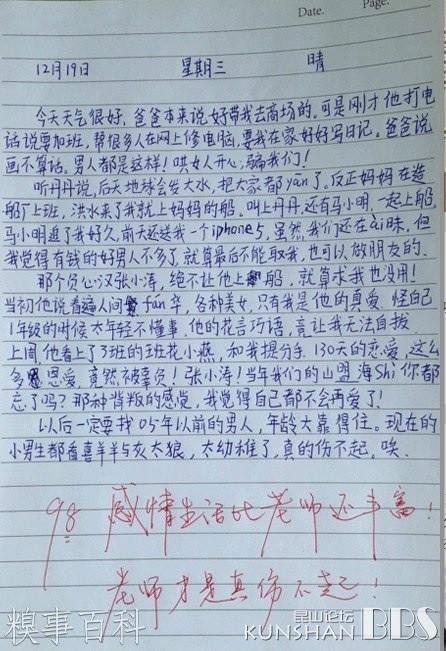 Date.
Page.
12月19日 星期三 晴
今天天气很好，爸爸本来说好带我去商场的。可是刚才他打电
话说要加班，帮很多人在网上修电脑，要我在家好好写日记。爸爸说
画不算话。男人都是这样！哄女人开心，骗我们！
听丹丹说，后天地球会发大水，把大家都yān了。反正妈妈在造
船厂上班，洪水来了我就上妈妈的船。叫上丹丹，还有马小明，一起上船，
马小明追了我好久，前天还送我一个iphone5，虽然我们还在ài昧，但
我觉得有钱的好男人不多了，就算最后不能取我，也可以做朋友的。
那个负心汉张小涛，绝不让他上船，就算求我也没用！
当初他说看遍人间fán华，各种美女，只有我是他的真爱，怪自己
1年级的时候太年轻不懂事，他的花言巧语，竟让我无法自拔，
上周他看上了3班的班花小燕，和我提分手，130天的恋爱，这么
多恩爱，竟然被辜负！张小涛！当年我们的山盟海Shì你都
忘了吗？那种背叛的感觉，我觉得自己都不会再爱了！
以后一定要找05年以前的男人，年龄大靠得住。现在的
小男生都看喜羊羊与灰太狼，太幼稚了，真的伤不起，唉。
98 感情生活比老师还丰富！
老师才是真伤不起！
糗事百科
昆山论坛
KUNSHAN BBS